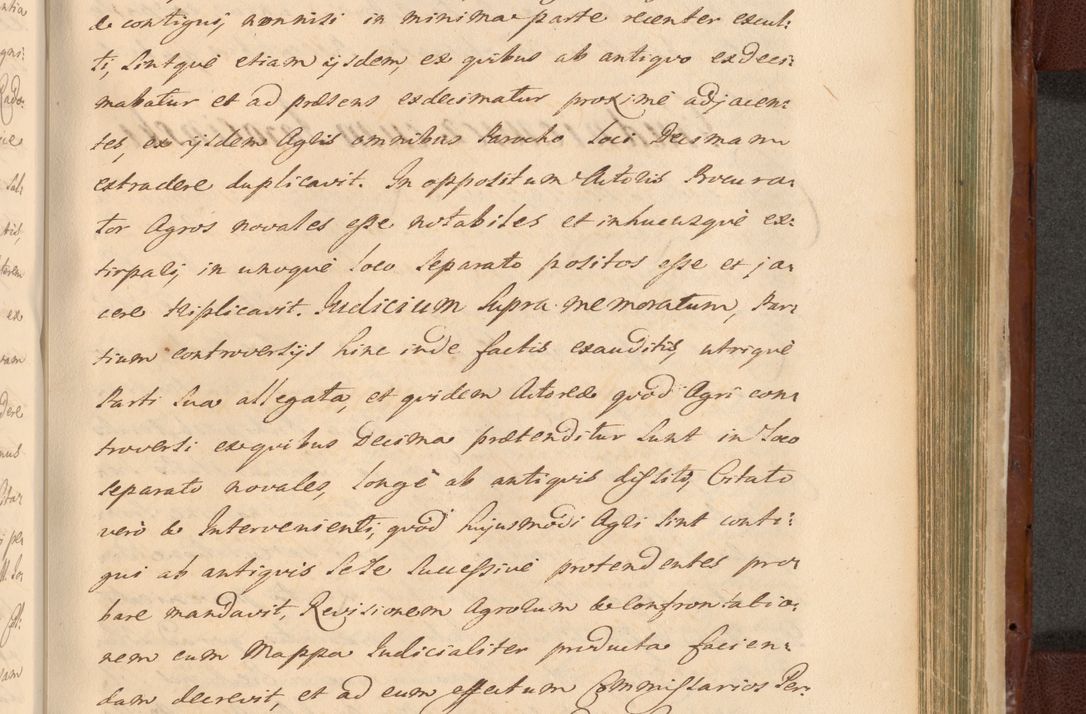 & contigui, nonnisi in minima parte recenter excul:
ti, sintquè etiam ijsdem, ex quibus ab antiquo exdeci:
mabatur et ad præsens exdecimatur proximè adjacen:
tes, ex ijsdem Agris omnibus Parocho Loci Decimam
extradere duplicavit. In oppositum Actoris Procura:
tor Agros novales esse notabiles et inhucusquè ex:
tirpatij in unoquè loco separato positos esse et ja:
cere triplicavit. Judicium supra memoratum, Par:
tium controversijs hinc inde factis exauditis, utriquè
Parti sua allegata, et quidem Actoreæ quod Agri con:
troversi ex quibus Decima prætenditur sunt in Loco
separato novales, longè ab antiquis dissiti, Citato
verò & Intervenienti, quod hujusmodi Agri sint conti:
gui ab antiquis sese successivè protendentes pro:
bare mandavit, Revisionem Agrorum & Confrontatio:
nem cum Mappa Judicialiter producta facien:
dam decrevit, et ad eum effectum Commissarios Per: